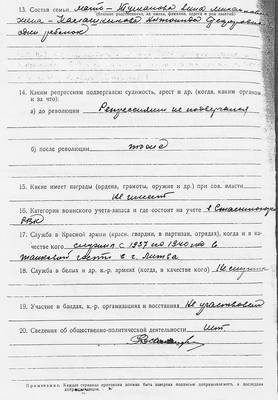 13. Состав семьи мать – Туманова Нина Михайловна
(близкие родственники, их имена, фамилии, адреса и род занятий)
жена – Антонина Федоровна
один ребенок
14. Каким репрессиям подвергался: судимость, арест и др. (когда, каким органом
и за что):
а) до революции Репрессиям не подвергался
б) после революции тоже
15. Какие имеет награды (ордена, грамоты, оружие и др.) при сов. власти
Не имеет
16. Категория воинского учета-запаса и где состоит на учете в Сталинском
РВК
17. Служба в Красной армии (красн. гвардии, в партизан. отрядах), когда и в ка-
честве кого служил с 1937 по 1940 год в
танковой части в г.
18. Служба в белых и др. к.-р. армиях (когда, в качестве кого) Не служил
19. Участие в бандах, к.-р. организациях и восстаниях Не участвовал
20. Сведения об общественно-политической деятельности Нет
Примечание. Каждая страница протокола должна быть заверена подписью допрашиваемого, а последняя
допрашивающим.